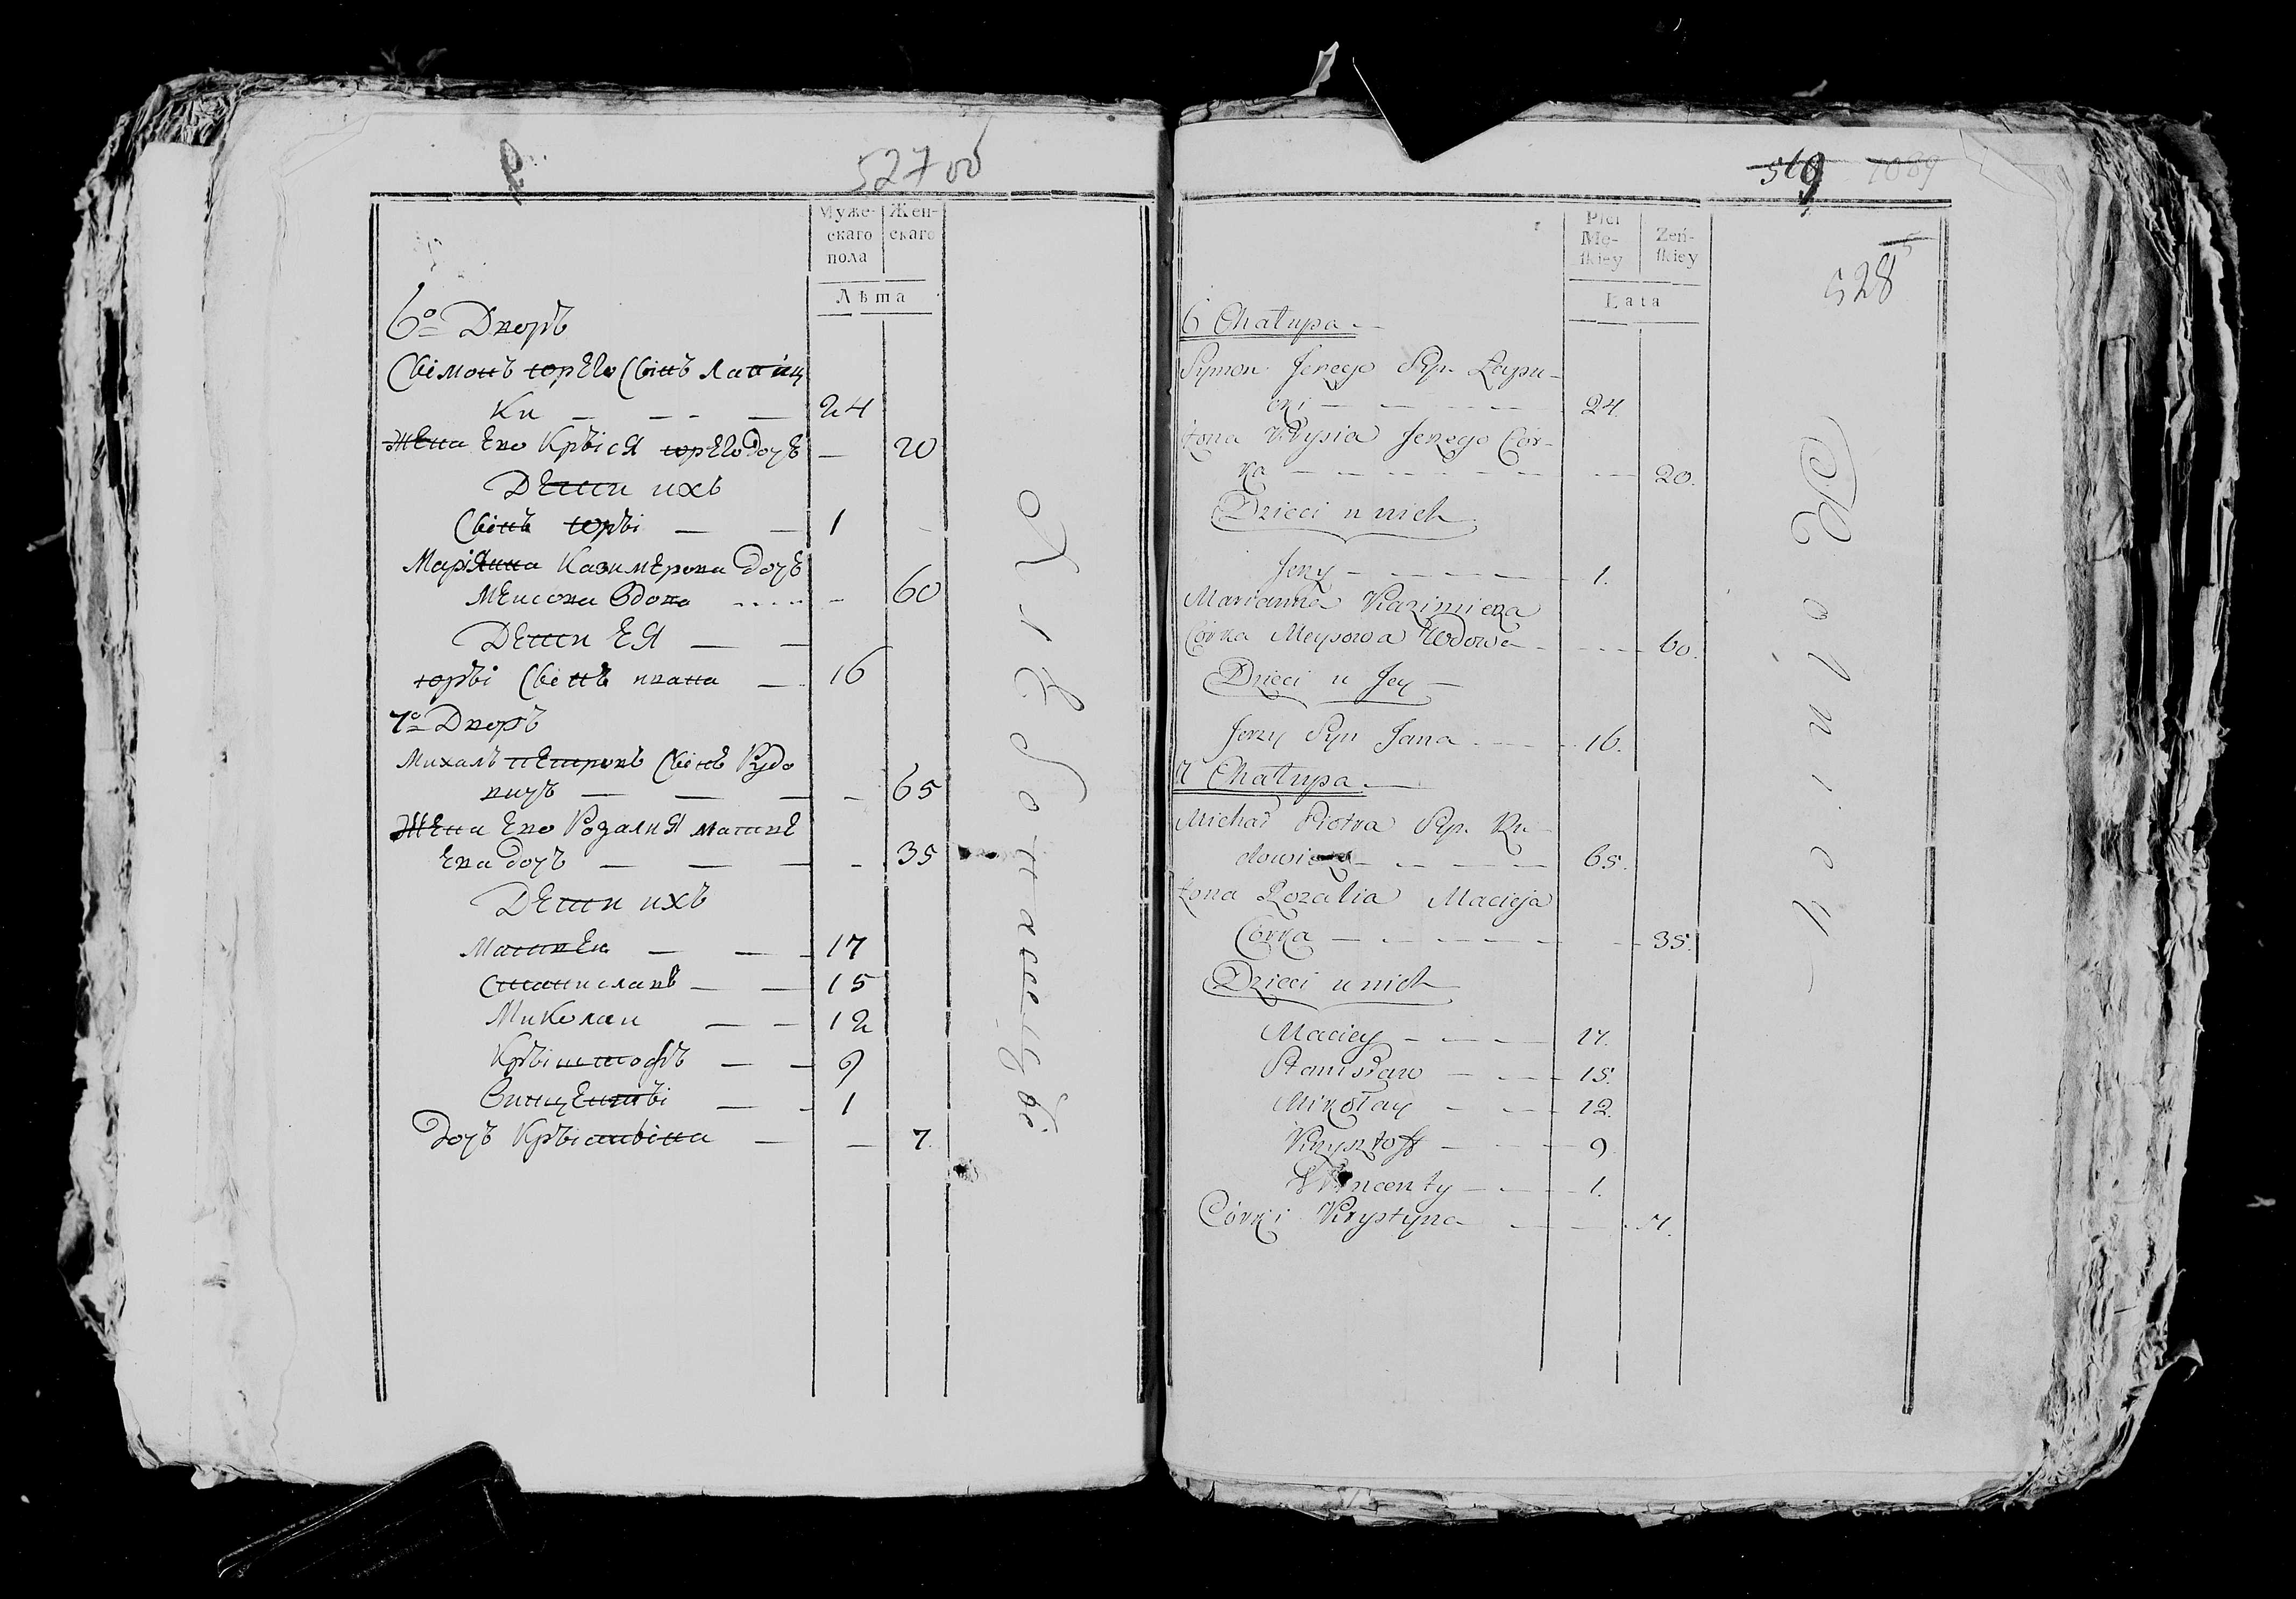 527 об
Муже-
скаго
пола
Жен-
скаго
Лѣта
6о Дворъ
Сѣімонъ юрего Сѣінъ Лапиц
Ки 24
Жена Ево Крѣіся юрего дочь 20
Дети ихъ
Сѣінъ юрѣі 1
Маріянна Казимерова дочь
Меисова Вдова 60
Дети Ея
юрѣі Сѣінъ ивана 16
7о Дворъ
Михалъ петровъ Сѣінъ Рудо
вичъ 65
Жена Ево Розалия матвѣ
Ева дочъ 35
Дети ихъ
Матвеи 17
Станиславъ 15
Миколаи 12
Крѣіштофъ 9
Винцентѣі 1
дочъ Крѣістѣіна 7
569 1089
528
Płci
Mę-
ſkiey
Żeń-
ſkiey
Lata
6 Chałupa
Symon Jerzego Syn Łapu-
cki 24
żona Krysia Jerzego Cór-
ka 20.
Dzieci u nich
Jerzy 1.
Marianna Kazimierza
Córka Meysowa Wdowa 60.
Dzieci u Jey
Jerzy Syn Jana 16.
7 Chałupa
Michał Piotra Syn Ru-
dowicz 65.
żona Rozalia Macieja
Córka 35.
Dzieci u nich
Maciey 17.
Stanisław 15.
Mikołay 12.
Krysztoff 9
Wincenty 1.
Córki Krystyna 7.